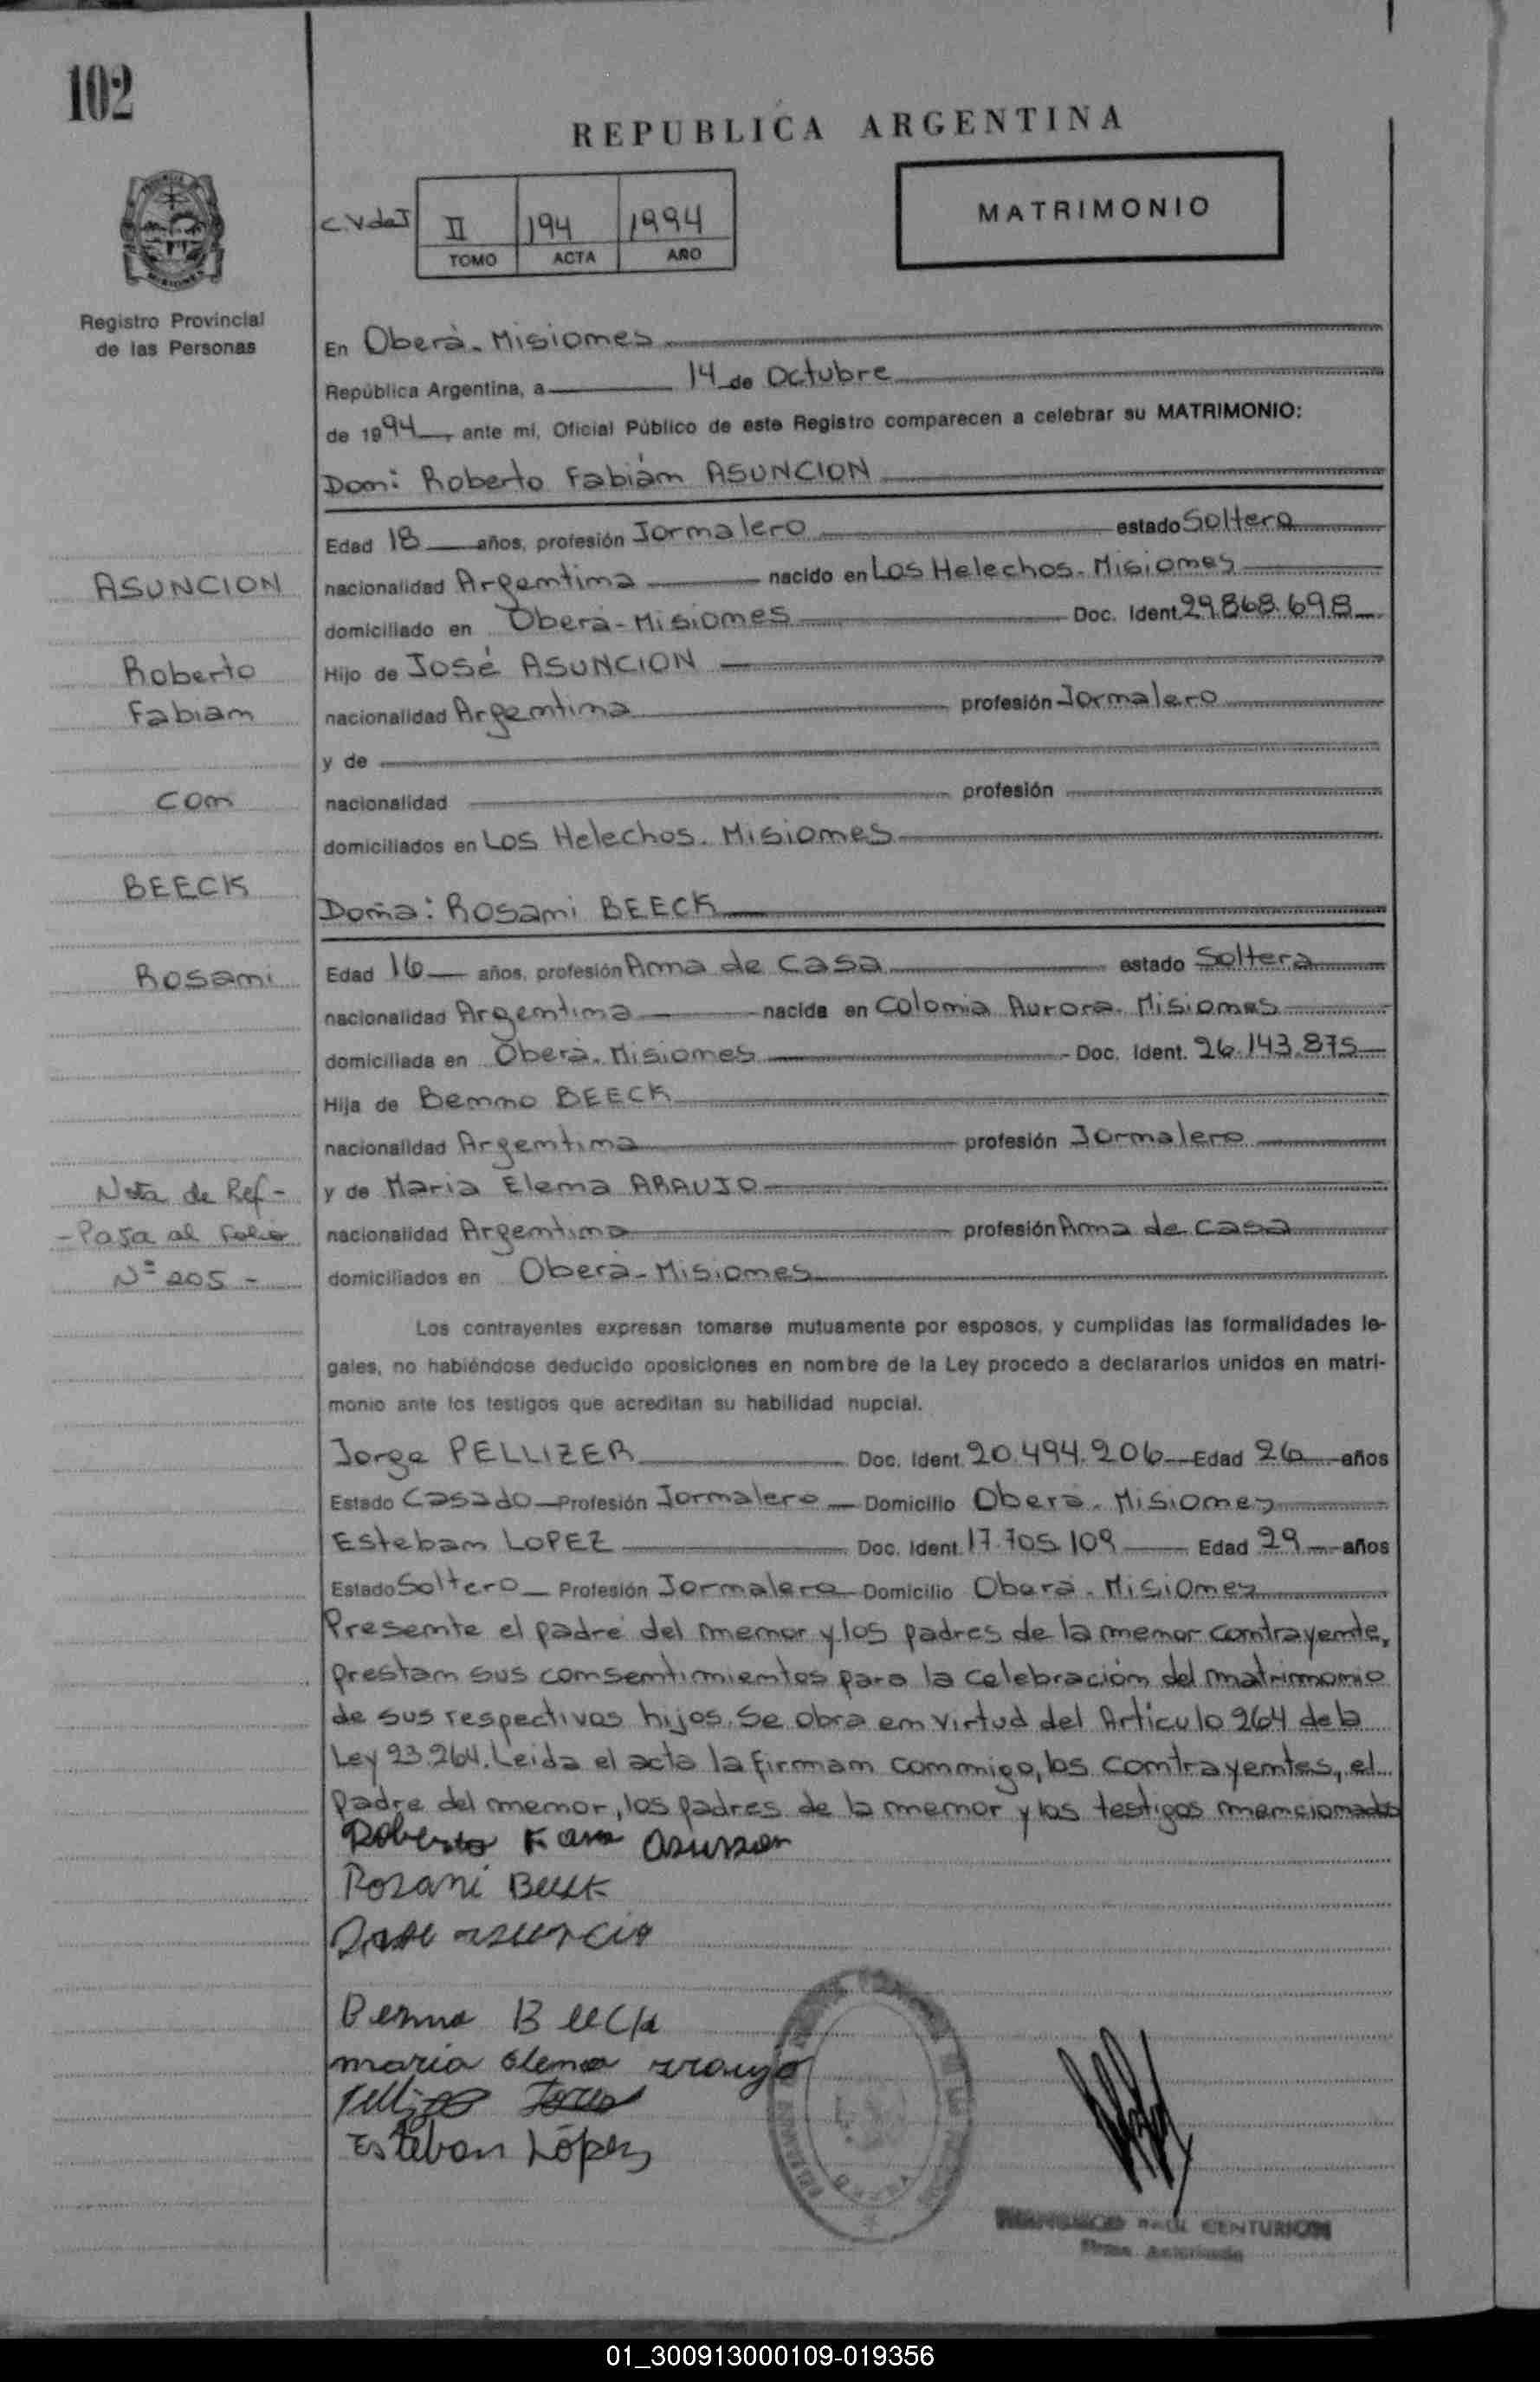 102
REPUBLICA ARGENTINA
MATRIMONIO
C.V de J II 194 1994
TOMO ACTA AÑO
Registro Provincial
de las Personas
En Oberà - Misiones
República Argentina, a 14 de Octubre
de 1994 ante mi, Oficial Público de este Registro comparecen a celebrar su MATRIMONIO:
Don: Roberto Fabián ASUNCION
Edad 18 años, profesión Jornalero estado Soltero
nacionalidad Argentina nacido en Los Helechos - Misiones
domiciliado en Oberà - Misiones Doc. Ident. 29.868.698
Hijo de José ASUNCION
nacionalidad Argentina profesión Jornalero
y de
nacionalidad profesión
domiciliados en Los Helechos - Misiones
Doña: Rosani BEECK
Edad 16 años, profesión Ama de Casa estado Soltera
nacionalidad Argentina nacida en Colonia Aurora - Misiones
domiciliada en Oberà - Misiones Doc. Ident. 26.143.875
Hija de Benno BEECK
nacionalidad Argentina profesión Jornalero
y de Maria Elena ARAUJO
nacionalidad Argentina profesión Ama de Casa
domiciliados en Oberà - Misiones
ASUNCION
Roberto
Fabian
con
BEECK
Rosani
Nota de Ref -
- Pasa al Folio
Nº 205 -
Los contrayentes expresan tomarse mutuamente por esposos, y cumplidas las formalidades le-
gales, no habiéndose deducido oposiciones en nombre de la Ley procedo a declararlos unidos en matri-
monio ante los testigos que acreditan su habilidad nupcial.
Jorge PELLIZER Doc. Ident. 20.494.206 Edad 26 años
Estado Casado Profesión Jornalero Domicilio Oberà - Misiones
Esteban LOPEZ Doc. Ident. 17.705.109 Edad 29 años
Estado Soltero Profesión Jornalero Domicilio Oberà - Misiones
Presente el padre del menor y los padres de la menor contrayente,
prestan sus consentimientos para la celebración del matrimonio
de sus respectivos hijos. Se obra en virtud del Articulo 264 de la
Ley 23.264. Leida el acta la firman conmigo, los contrayentes, el
padre del menor, los padres de la menor y los testigos mencionados
Roberto
Rosani Beeck
Benno Beeck
maria elena araujo
Esteban López
RAUL CENTURION
Firma Autorizada
01_300913000109-019356